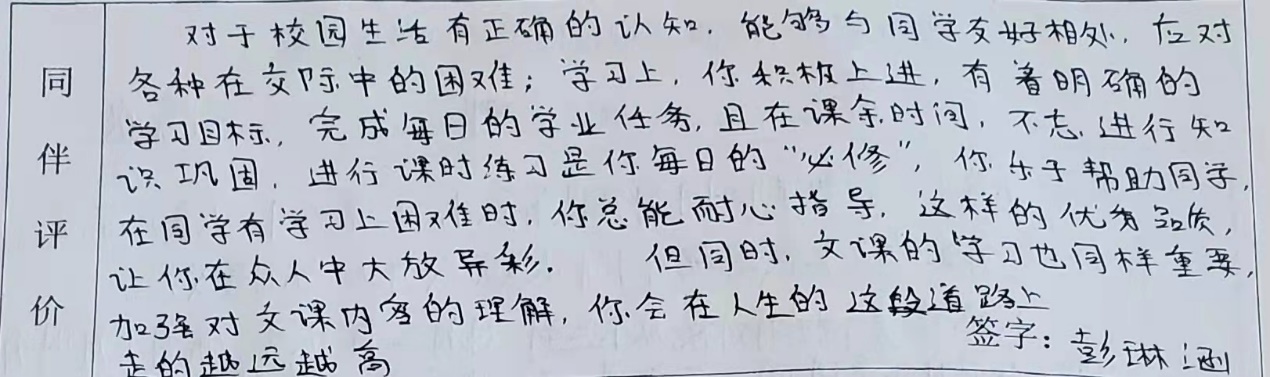 同伴评价
对于校园生活有正确的认知，能够与同学友好相处，应对
各种在交际中的困难；学习上，你积极上进，有着明确的
学习目标，完成每日的学业任务，且在课余时间，不忘进行知
识巩固，进行课时练习是你每日的“必修”，你乐于帮助同学，
在同学有学习上困难时，你总能耐心指导，这样的优秀品质，
让你在众人中大放异彩． 但同时，文课的学习也同样重要，
加强对文课内容的理解，你会在人生的这段道路上
走的越远越高
签字：彭琳涵